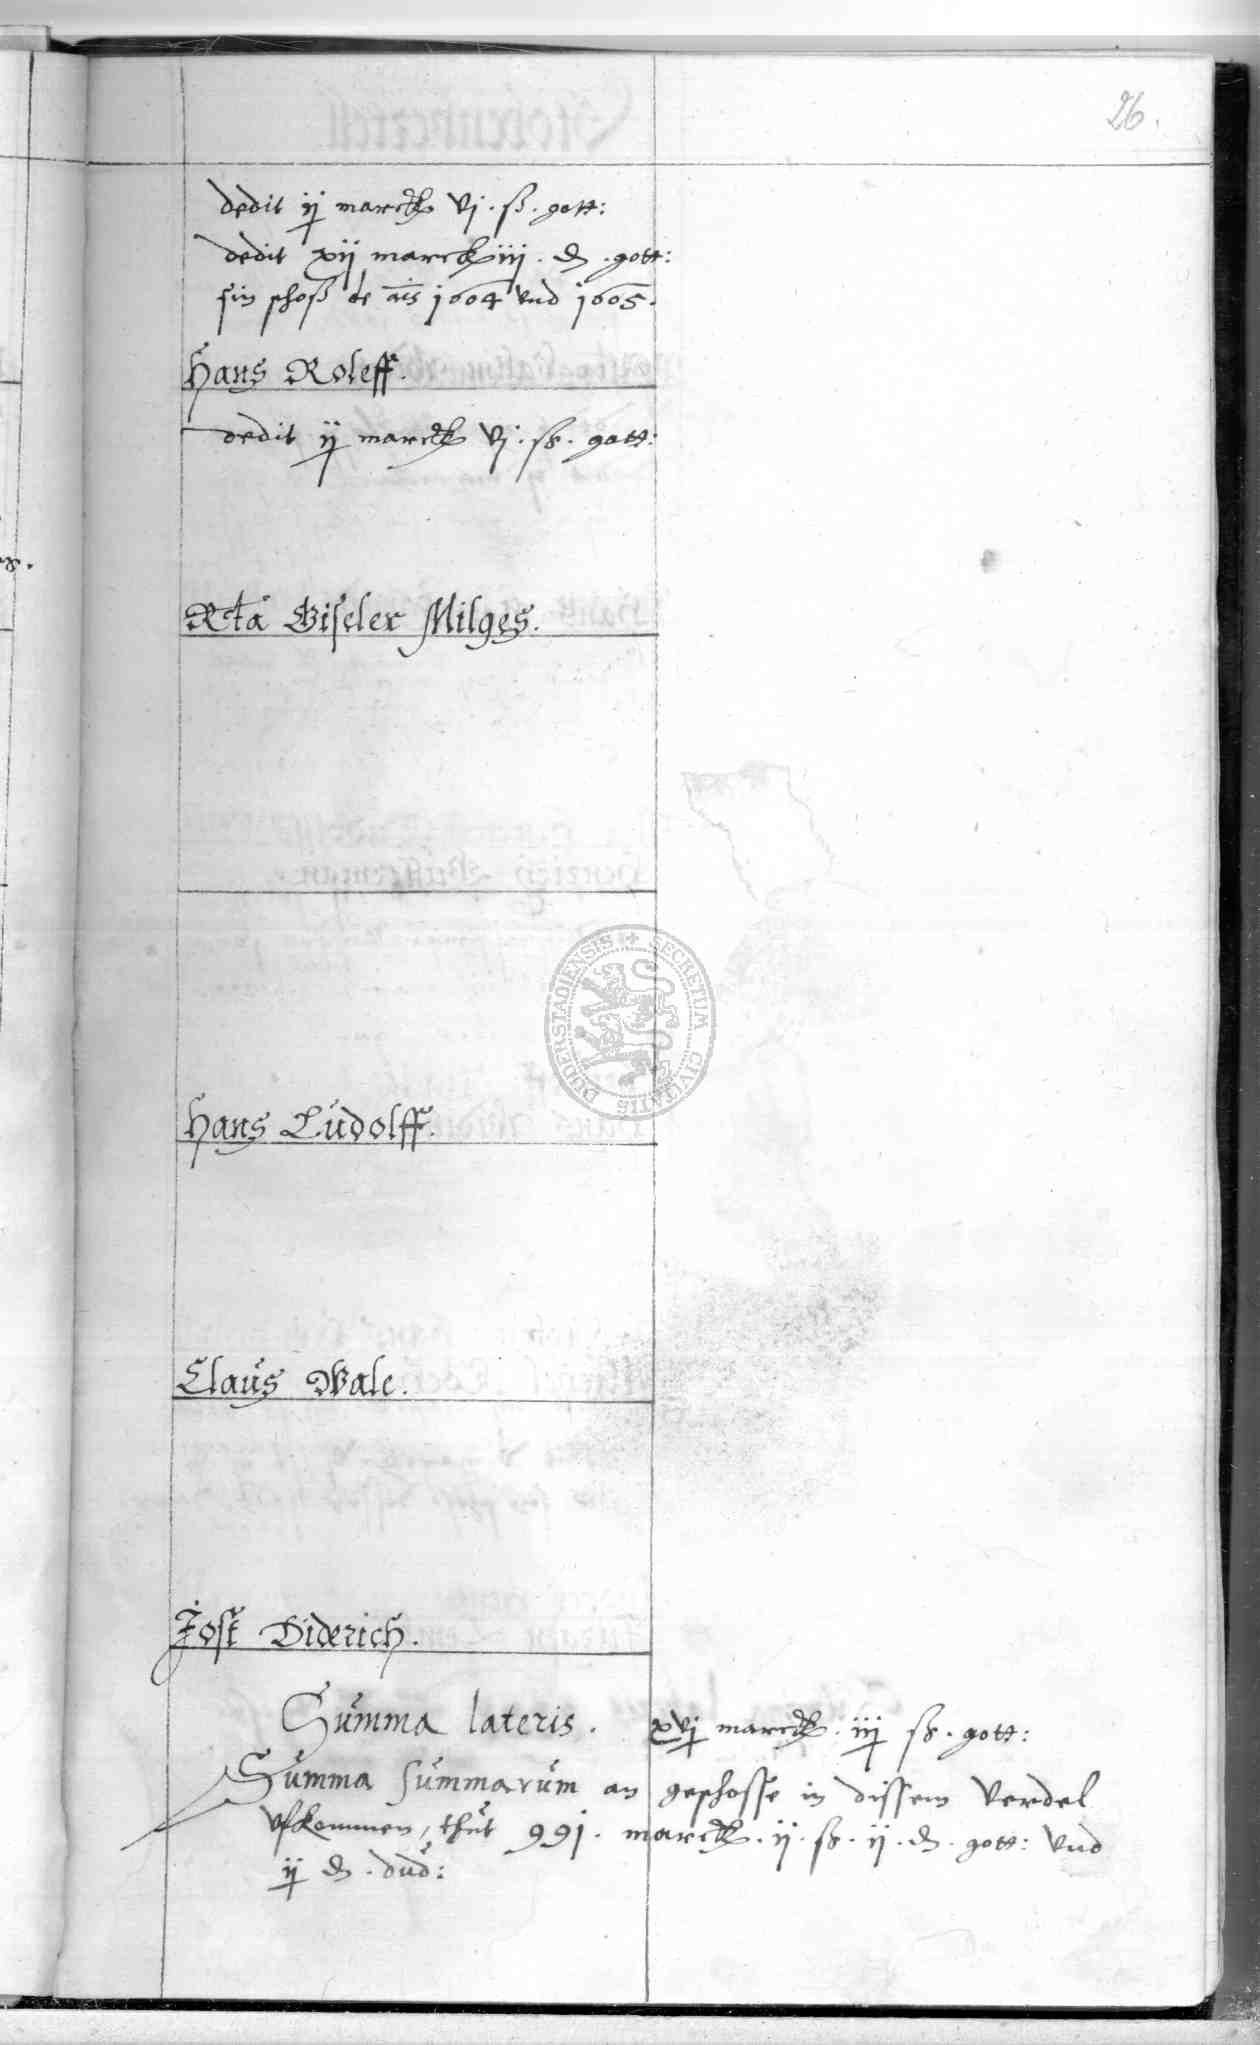 26.
dedit ij marck vj. ß. gott:
dedit xij marck iij. d. gott:
sin schoß de ais 1604 vnd 1605.
Hans Roleff.
dedit ij marck vj. ß. gott:
Rta Giseler Milges.
DUDERSTADIENSIS + SECRETUM CIVITATIS
Hans Ludolff.
Claus Wale.
Jost Diderich.
Summa lateris. xvj marck. iij ß. gott:
Summa summarum an geschosse in dissem Verdel
vfkommen, thut 991. marck. ij. ß. ij. d. gott: vnd
ij d. dud: